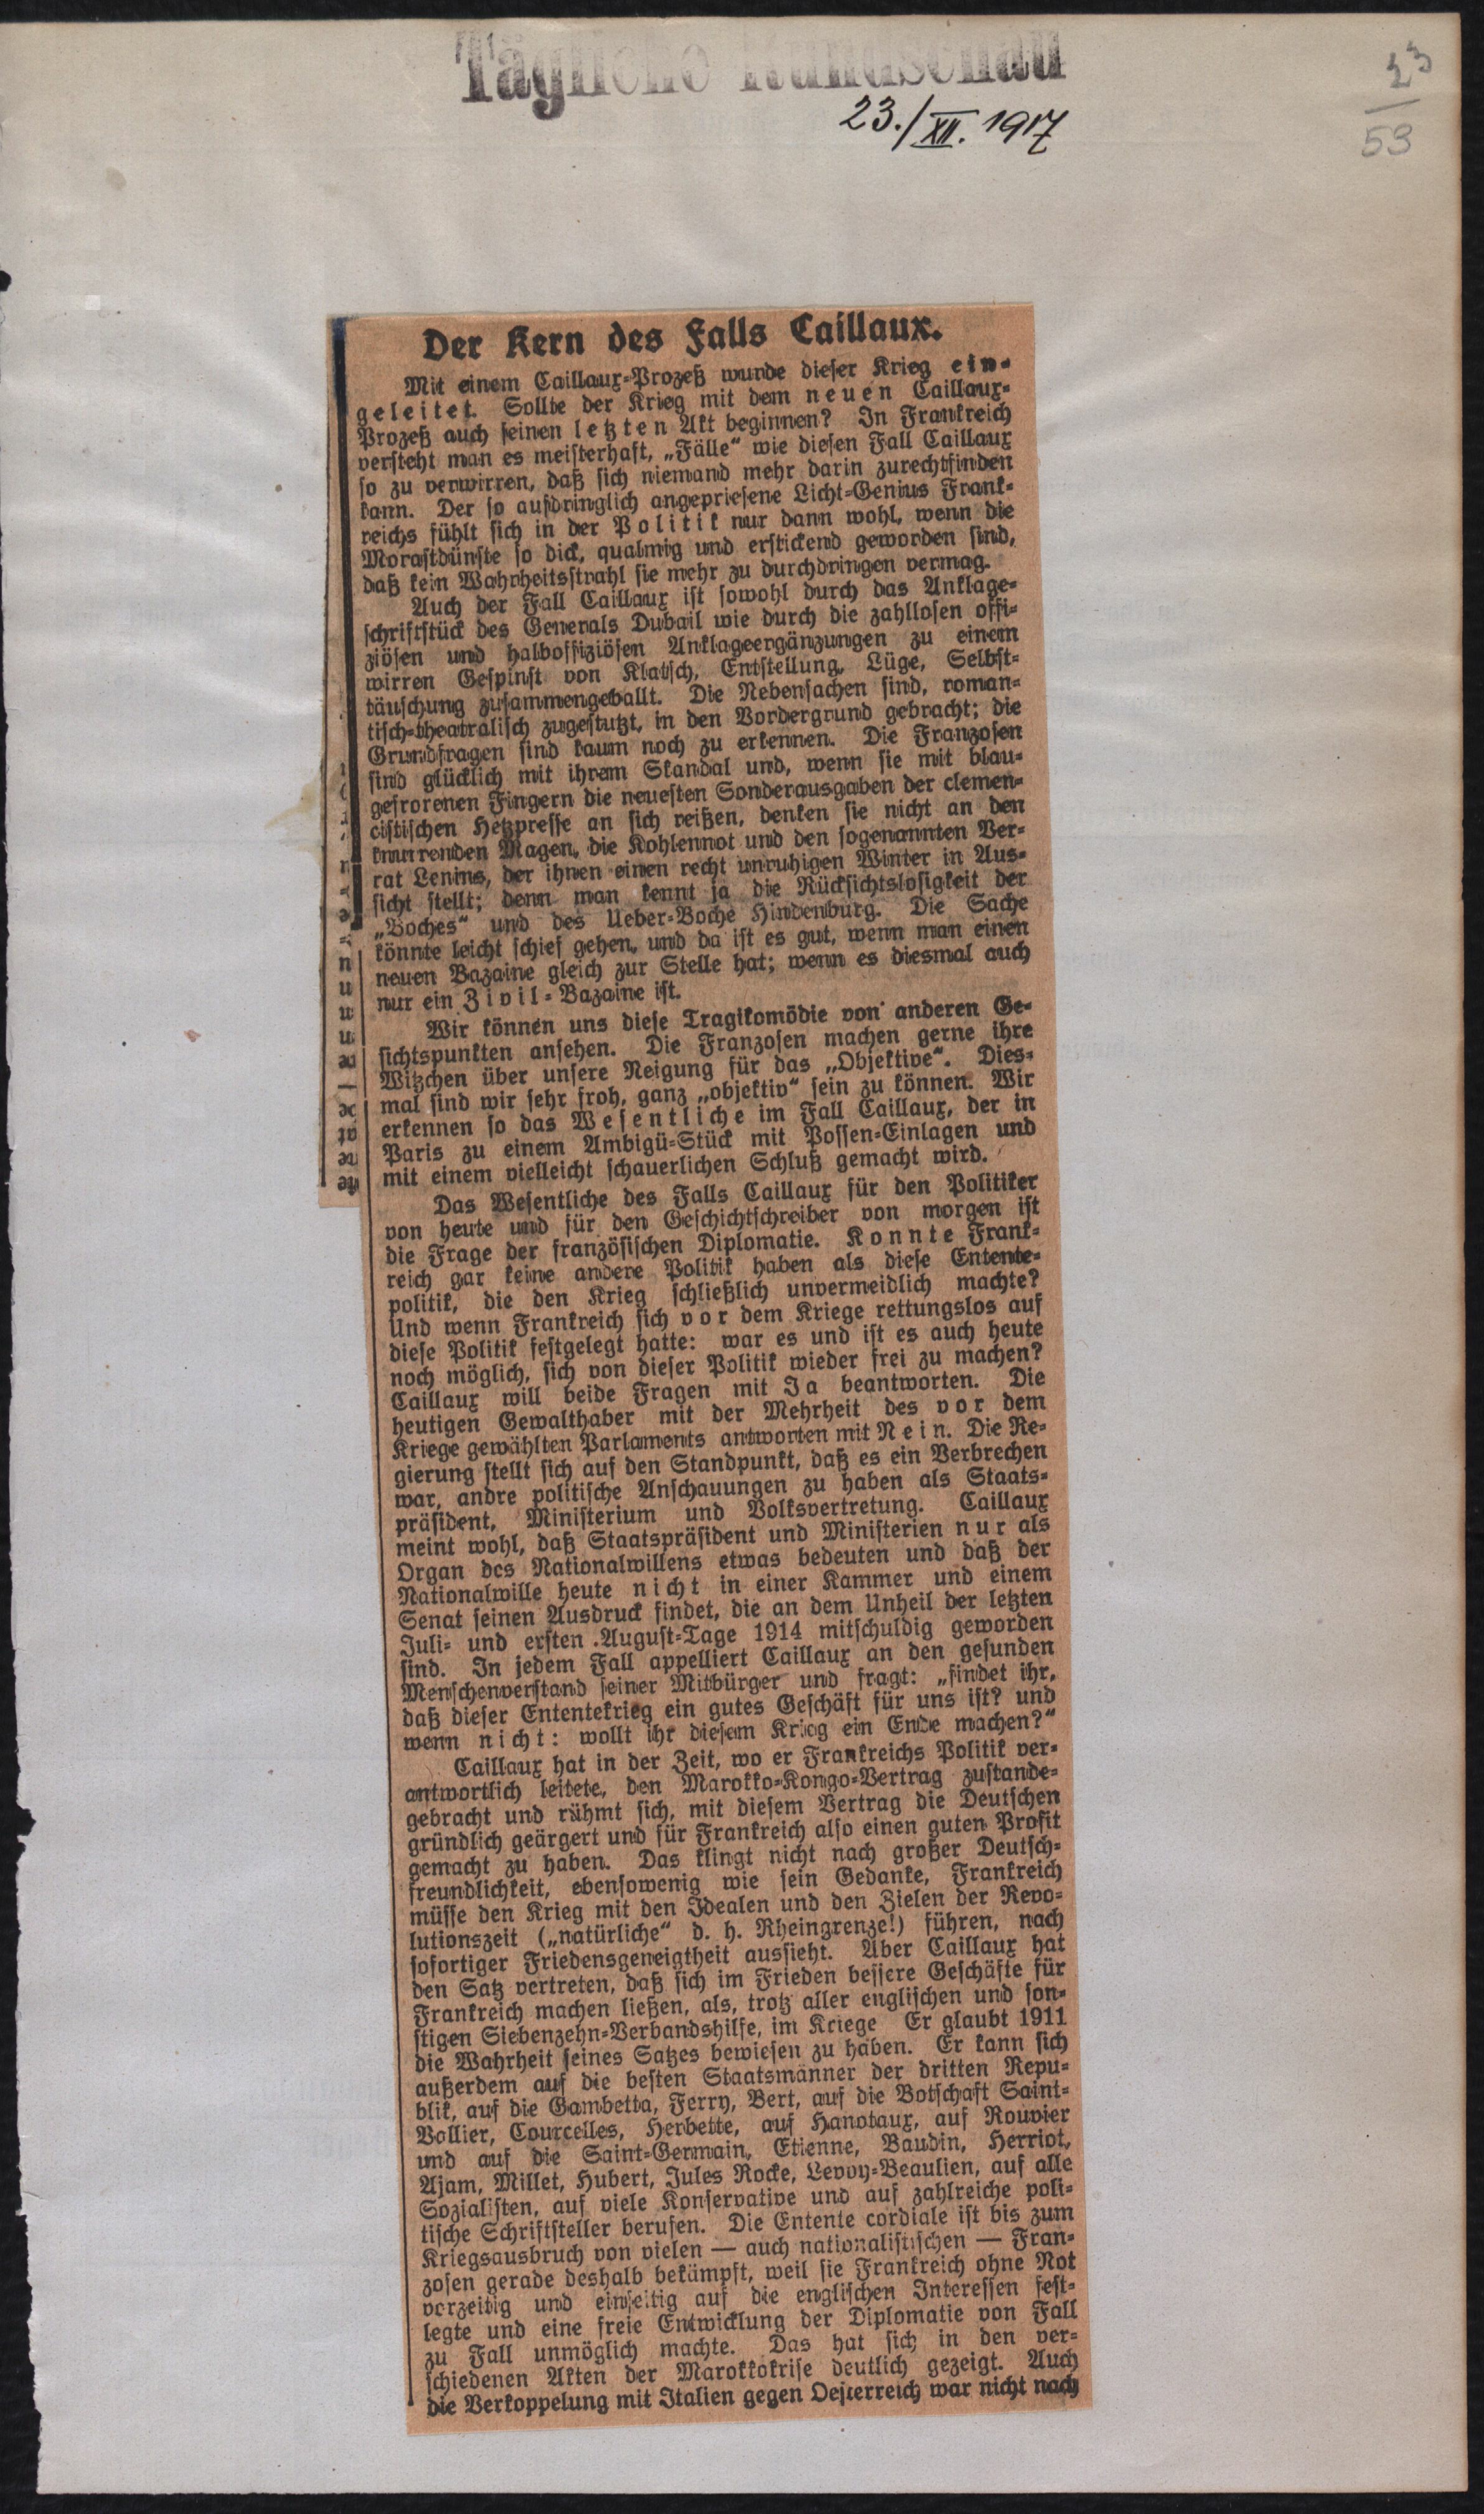 Tägliche Rundschau
23./XII. 1917
23
53
Der Kern des Falls Caillaux.
Mit einem Caillaux-Prozeß wurde dieser Krieg ein-
geleitet. Sollte der Krieg mit dem neuen Caillaux-
Prozeß auch seinen letzten Akt beginnen? In Frankreich
versteht man es meisterhaft, „Fälle“ wie diesen Fall Caillaux
so zu verwirren, daß sich niemand mehr darin zurechtfinden
kann. Der so aufdringlich angepriesene Licht-Genius Frank-
reichs fühlt sich in der Politik nur dann wohl, wenn die
Morastdünste so dick, qualmig und erstickend geworden sind,
daß kein Wahrheitsstrahl sie mehr zu durchdringen vermag.
Auch der Fall Caillaux ist sowohl durch das Anklage-
schriftstück des Generals Dubail wie durch die zahllosen offi-
ziösen und halboffiziösen Anklageergänzungen zu einem
wirren Gespinst von Klatsch, Entstellung, Lüge, Selbst-
täuschung zusammengeballt. Die Nebensachen sind, roman-
tisch-theatralisch zugestutzt, in den Vordergrund gebracht; die
Grundfragen sind kaum noch zu erkennen. Die Franzosen
sind glücklich mit ihrem Skandal und, wenn sie mit blau-
gefrorenen Fingern die neuesten Sonderausgaben der clemen-
cistischen Hetzpresse an sich reißen, denken sie nicht an den
knurrenden Magen, die Kohlennot und den sogenannten Ver-
rat Lenins, der ihnen einen recht unruhigen Winter in Aus-
sicht stellt; denn man kennt ja die Rücksichtslosigkeit der
„Boches“ und des Ueber-Boche Hindenburg. Die Sache
könnte leicht schief gehen, und da ist es gut, wenn man einen
neuen Bazaine gleich zur Stelle hat; wenn es diesmal auch
nur ein Zivil-Bazaine ist.
Wir können uns diese Tragikomödie von anderen Ge-
sichtspunkten ansehen. Die Franzosen machen gerne ihre
Witzchen über unsere Neigung für das „Objektive“. Dies-
mal sind wir sehr froh, ganz „objektiv“ sein zu können. Wir
erkennen so das Wesentliche im Fall Caillaux, der in
Paris zu einem Ambigü-Stück mit Possen-Einlagen und
mit einem vielleicht schauerlichen Schluß gemacht wird.
Das Wesentliche des Falls Caillaux für den Politiker
von heute und für den Geschichtschreiber von morgen ist
die Frage der französischen Diplomatie. Konnte Frank-
reich gar keine andere Politik haben als diese Entente-
politik, die den Krieg schließlich unvermeidlich machte?
Und wenn Frankreich sich vor dem Kriege rettungslos auf
diese Politik festgelegt hatte: war es und ist es auch heute
noch möglich, sich von dieser Politik wieder frei zu machen?
Caillaux will beide Fragen mit Ja beantworten. Die
heutigen Gewalthaber mit der Mehrheit des vor dem
Kriege gewählten Parlaments antworten mit Nein. Die Re-
gierung stellt sich auf den Standpunkt, daß es ein Verbrechen
war, andre politische Anschauungen zu haben als Staats-
präsident, Ministerium und Volksvertretung. Caillaux
meint wohl, daß Staatspräsident und Ministerien nur als
Organ des Nationalwillens etwas bedeuten und daß der
Nationalwille heute nicht in einer Kammer und einem
Senat seinen Ausdruck findet, die an dem Unheil der letzten
Juli- und ersten August-Tage 1914 mitschuldig geworden
sind. In jedem Fall appelliert Caillaux an den gesunden
Menschenverstand seiner Mitbürger und fragt: „findet ihr,
daß dieser Ententekrieg ein gutes Geschäft für uns ist? und
wenn nicht: wollt ihr diesem Krieg ein Ende machen?“
Caillaux hat in der Zeit, wo er Frankreichs Politik ver-
antwortlich leitete, den Marokko-Kongo-Vertrag zustande-
gebracht und rühmt sich, mit diesem Vertrag die Deutschen
gründlich geärgert und für Frankreich also einen guten Profit
gemacht zu haben. Das klingt nicht nach großer Deutsch-
freundlichkeit, ebensowenig wie sein Gedanke, Frankreich
müsse den Krieg mit den Idealen und den Zielen der Revo-
lutionszeit („natürliche“ d. h. Rheingrenze!) führen, nach
sofortiger Friedensgeneigtheit aussieht. Aber Caillaux hat
den Satz vertreten, daß sich im Frieden bessere Geschäfte für
Frankreich machen ließen, als, trotz aller englischen und son-
stigen Siebenzehn-Verbandshilfe, im Kriege Er glaubt 1911
die Wahrheit seines Satzes bewiesen zu haben. Er kann sich
außerdem auf die besten Staatsmänner der dritten Repu-
blik, auf die Gambetta, Ferry, Bert, auf die Botschaft Saint-
Vallier, Courcelles, Herbette, auf Hanotaux, auf Rouvier
und auf die Saint-Germain, Etienne, Baudin, Herriot,
Ajam, Millet, Hubert, Jules Rocke, Levoy-Beaulien, auf alle
Sozialisten, auf viele Konservative und auf zahlreiche poli-
tische Schriftsteller berufen. Die Entente cordiale ist bis zum
Kriegsausbruch von vielen — auch nationalistischen — Fran-
zosen gerade deshalb bekämpft, weil sie Frankreich ohne Not
vorzeitig und einseitig auf die englischen Interessen fest-
legte und eine freie Entwicklung der Diplomatie von Fall
zu Fall unmöglich machte. Das hat sich in den ver-
schiedenen Akten der Marokkokrise deutlich gezeigt. Auch
die Verkoppelung mit Italien gegen Oesterreich war nicht nach